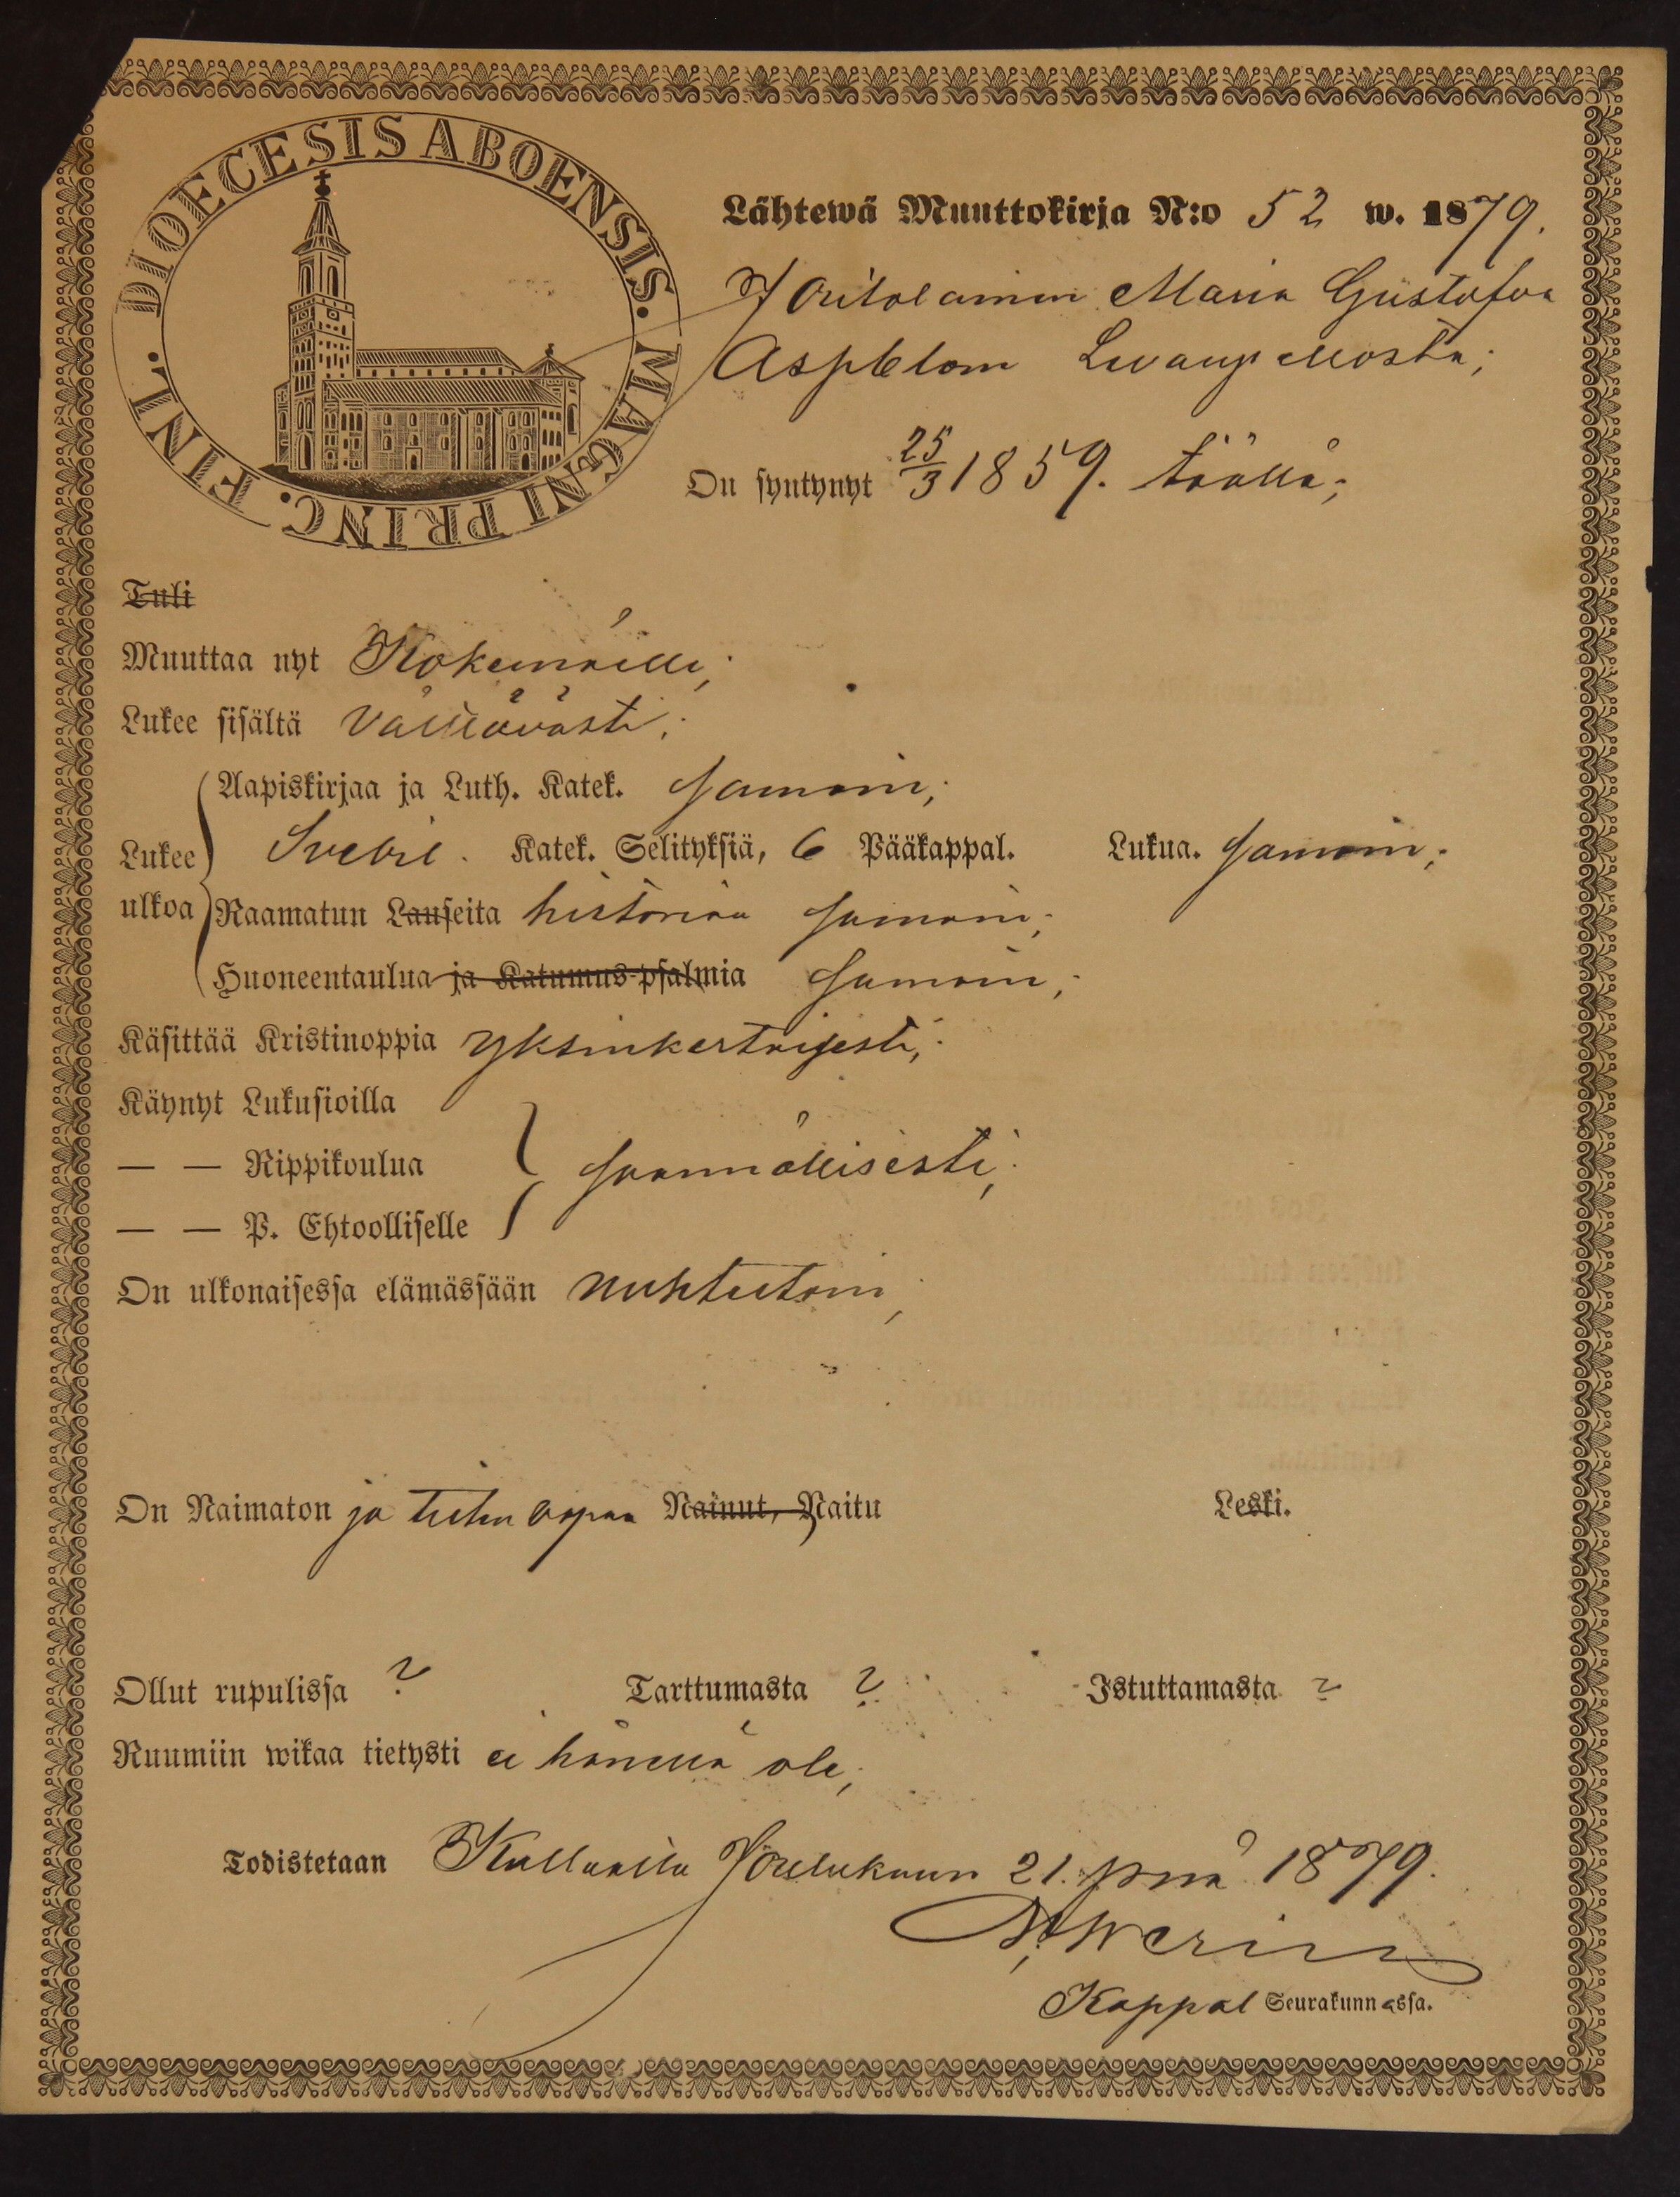 DIOECESIS ABOENSIS. MAGNI PRINC. FINL.
Lähtewä Muuttokirja N:o 52 w. 1879.
Maria Gustafva
Asplom
On syntynyt 25/3 1859. täällä;
Tuli
Muuttaa nyt Kokemäille;
Lukee sisältä välttävästi;
Aapiskirjaa ja Luth. Katek. samoin;
Lukee Svebil. Katek. Selityksiä, 6 Pääkappal. Lukua. samoin;
ulkoa Raamatun Lauseita historiaa samoin;
Huoneentaulua ja Katumus-psalmia samoin;
Käsittää Kristinoppia yksinkertaisesti;
Käynyt Lukusioilla
— — Rippikoulua säännöllisesti;
— — P. Ehtoolliselle
On ulkonaisessa elämässään nuhteetoin;
On Naimaton ja vapaa Nainut, Naitu Leski.
Ollut rupulissa ? Tarttumasta ? Istuttamasta ?
Ruumiin wikaa tietysti ei hänellä ole;
Todistetaan Kullaalla Joulukuun 21. pnä 1879.
Kappal Seurakunnassa.